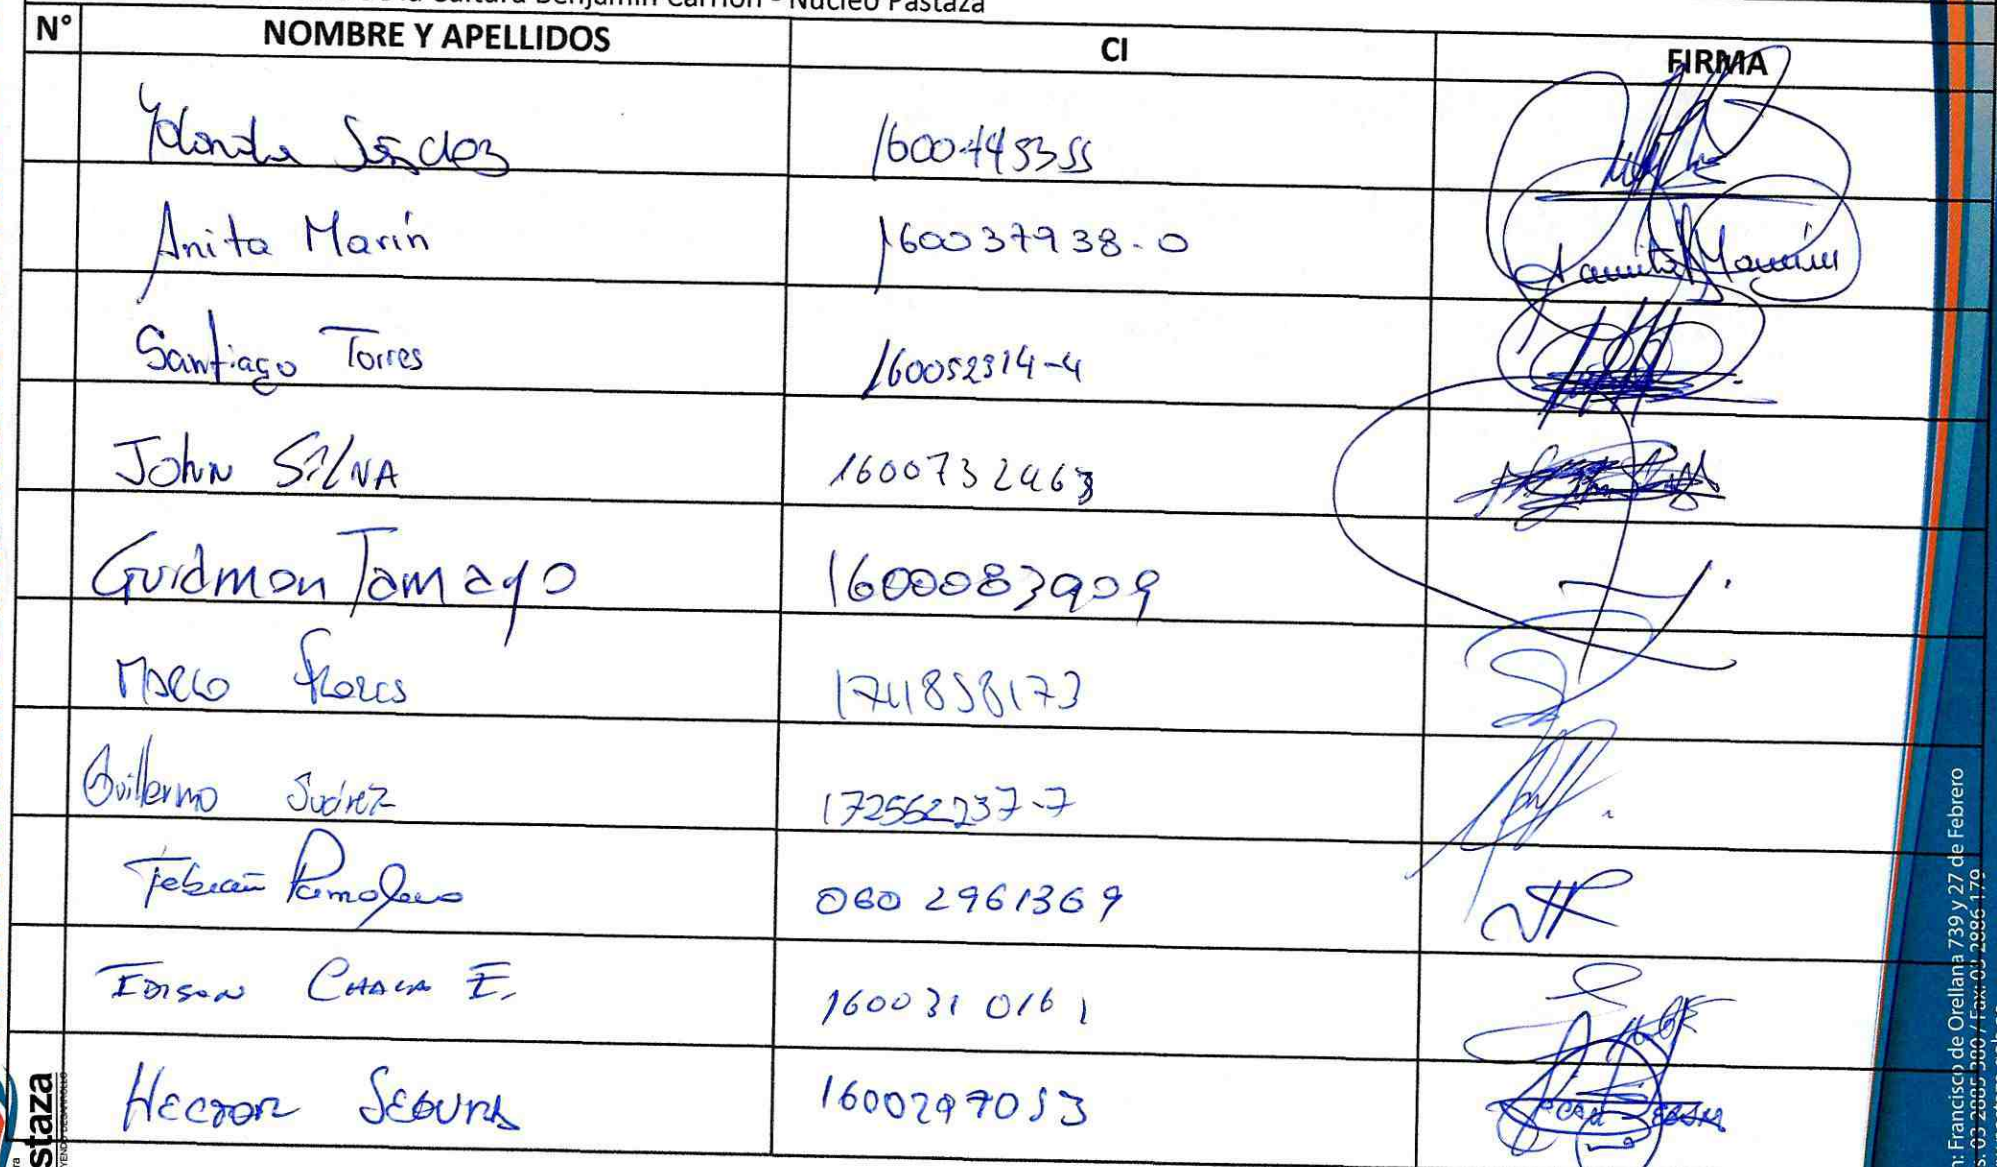 Cultura Benjamín Carrión - Núcleo Pastaza
N° NOMBRE Y APELLIDOS CI FIRMA
Yolanda Sánchez 1600445355
Anita Marín 160037938-0 Anita Marín
Santiago Torres 160052314-4
John SilVA 1600732463
Guidmon Tamayo 1600083909
Marco Flores 1711858173
Guillermo Suárez 172562237-7
Fabián 0602961369
EDISON E. 1600310161
HECTOR SEGURA 1600297053
staza
YENDO DESARROLLO
n: Francisco de Orellana 739 y 27 de Febrero
s. 03 2885 380 / Fax: 03 2886 179